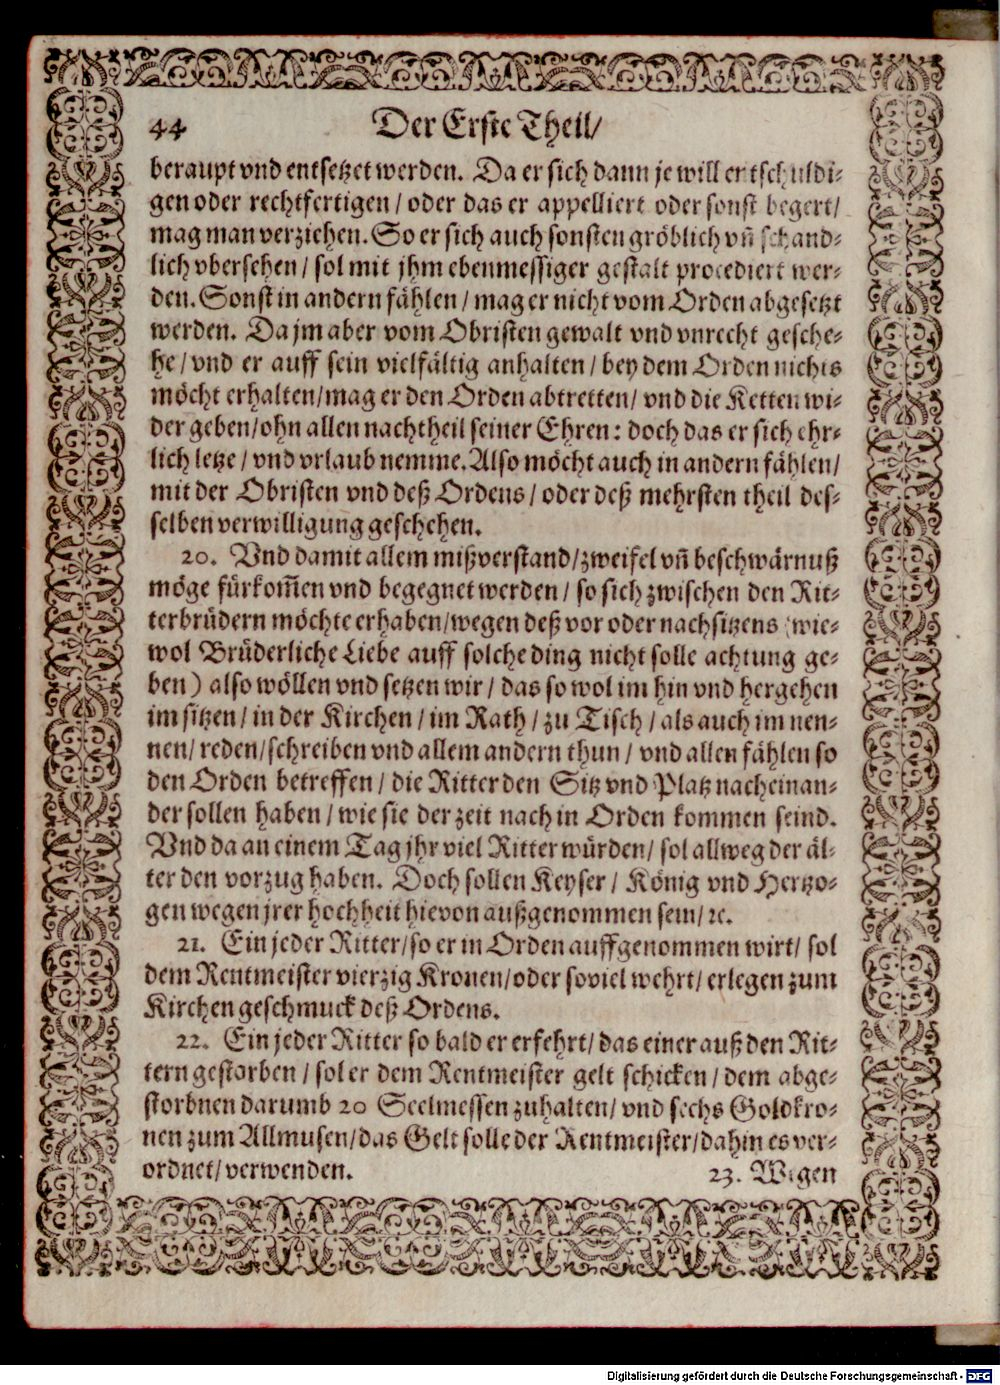 44 Der Erste Theil/
beraupt vnd entsetzet werden. Da er sich dann je will entschuldi-
gen oder rechtfertigen / oder das er appelliert oder sonst begert/
mag man verziehen. So er sich auch sonsten gröblich vñ schand-
lich vbersehen / sol mit jhm ebenmessiger gestalt procediert wer-
den. Sonst in andern fählen / mag er nicht vom Orden abgesetzt
werden. Da jm aber vom Obristen gewalt vnd vnrecht gesche-
he / vnd er auff sein vielfältig anhalten / bey dem Orden nichts
möcht erhalten/mag er den Orden abtretten/ vnd die Ketten wi-
der geben/ohn allen nachtheil seiner Ehren: doch das er sich ehr-
lich letze / vnd vrlaub nemme. Also möcht auch in andern fählen/
mit der Obristen vnd deß Ordens / oder deß mehrsten theil des-
selben verwilligung geschehen.
20. Vnd damit allem mißverstand/zweifel vñ beschwärnuß
möge fürkom̃en vnd begegnet werden / so sich zwischen den Rit-
terbrüdern möchte erhaben/wegen deß vor oder nachsitzens (wie-
wol Brüderliche Liebe auff solche ding nicht solle achtung ge-
ben) also wöllen vnd setzen wir / das so wol im hin vnd hergehen
im sitzen / in der Kirchen / im Rath / zu Tisch / als auch im nen-
nen/ reden/schreiben vnd allem andern thun / vnd allen fählen so
den Orden betreffen / die Ritter den Sitz vnd Platz nacheinan-
der sollen haben / wie sie der zeit nach in Orden kommen seind.
Vnd da an einem Tag jhr viel Ritter würden/ sol allweg der äl-
ter den vorzug haben. Doch sollen Keyser / König vnd Hertzo-
gen wegen jrer hochheit hievon außgenommen sein/ ꝛc.
21. Ein jeder Ritter/so er in Orden auffgenommen wirt/ sol
dem Rentmeister vierzig Kronen/oder soviel wehrt/ erlegen zum
Kirchen geschmuck deß Ordens.
22. Ein jeder Ritter so bald er erfehrt/ das einer auß den Rit-
tern gestorben / sol er dem Rentmeister gelt schicken / dem abge-
storbnen darumb 20 Seelmessen zuhalten/ vnd sechs Goldkro-
nen zum Allmusen/das Gelt solle der Rentmeister/dahin es ver-
ordnet/ verwenden. 23. Wegen
Digitalisierung gefördert durch die Deutsche Forschungsgemeinschaft - DFG